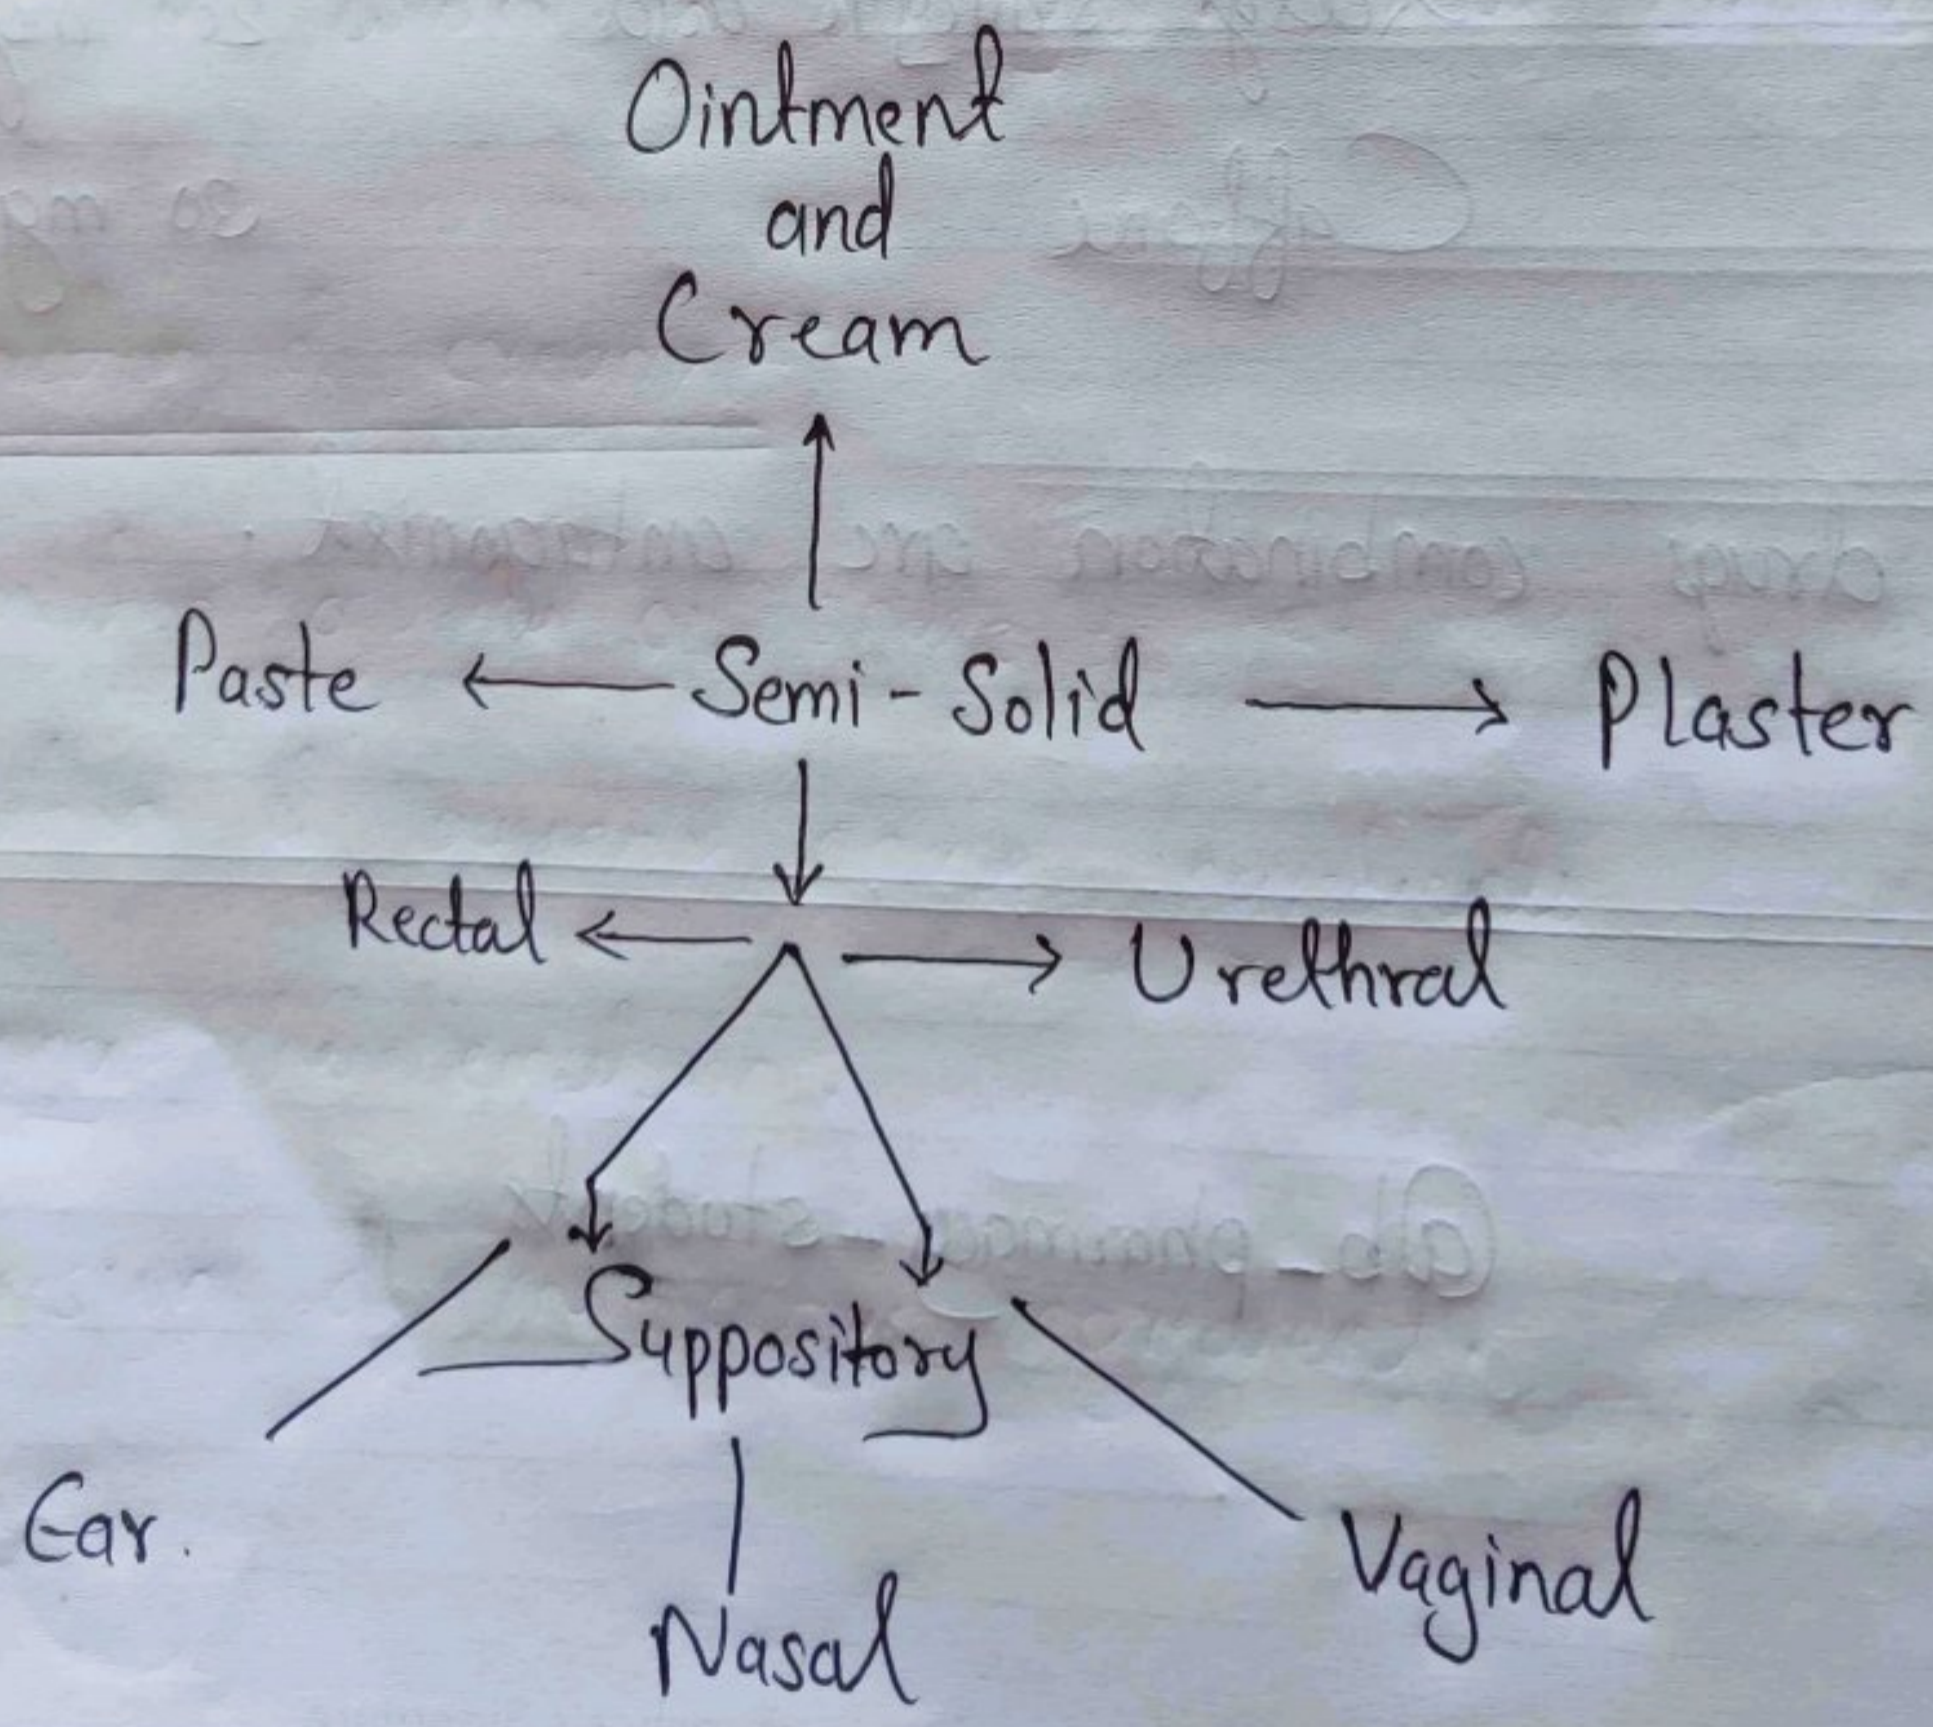 Ointment
and
Cream
Paste ← Semi-Solid → Plaster
Rectal ← → Urethral
Suppository
Ear.
Nasal
Vaginal